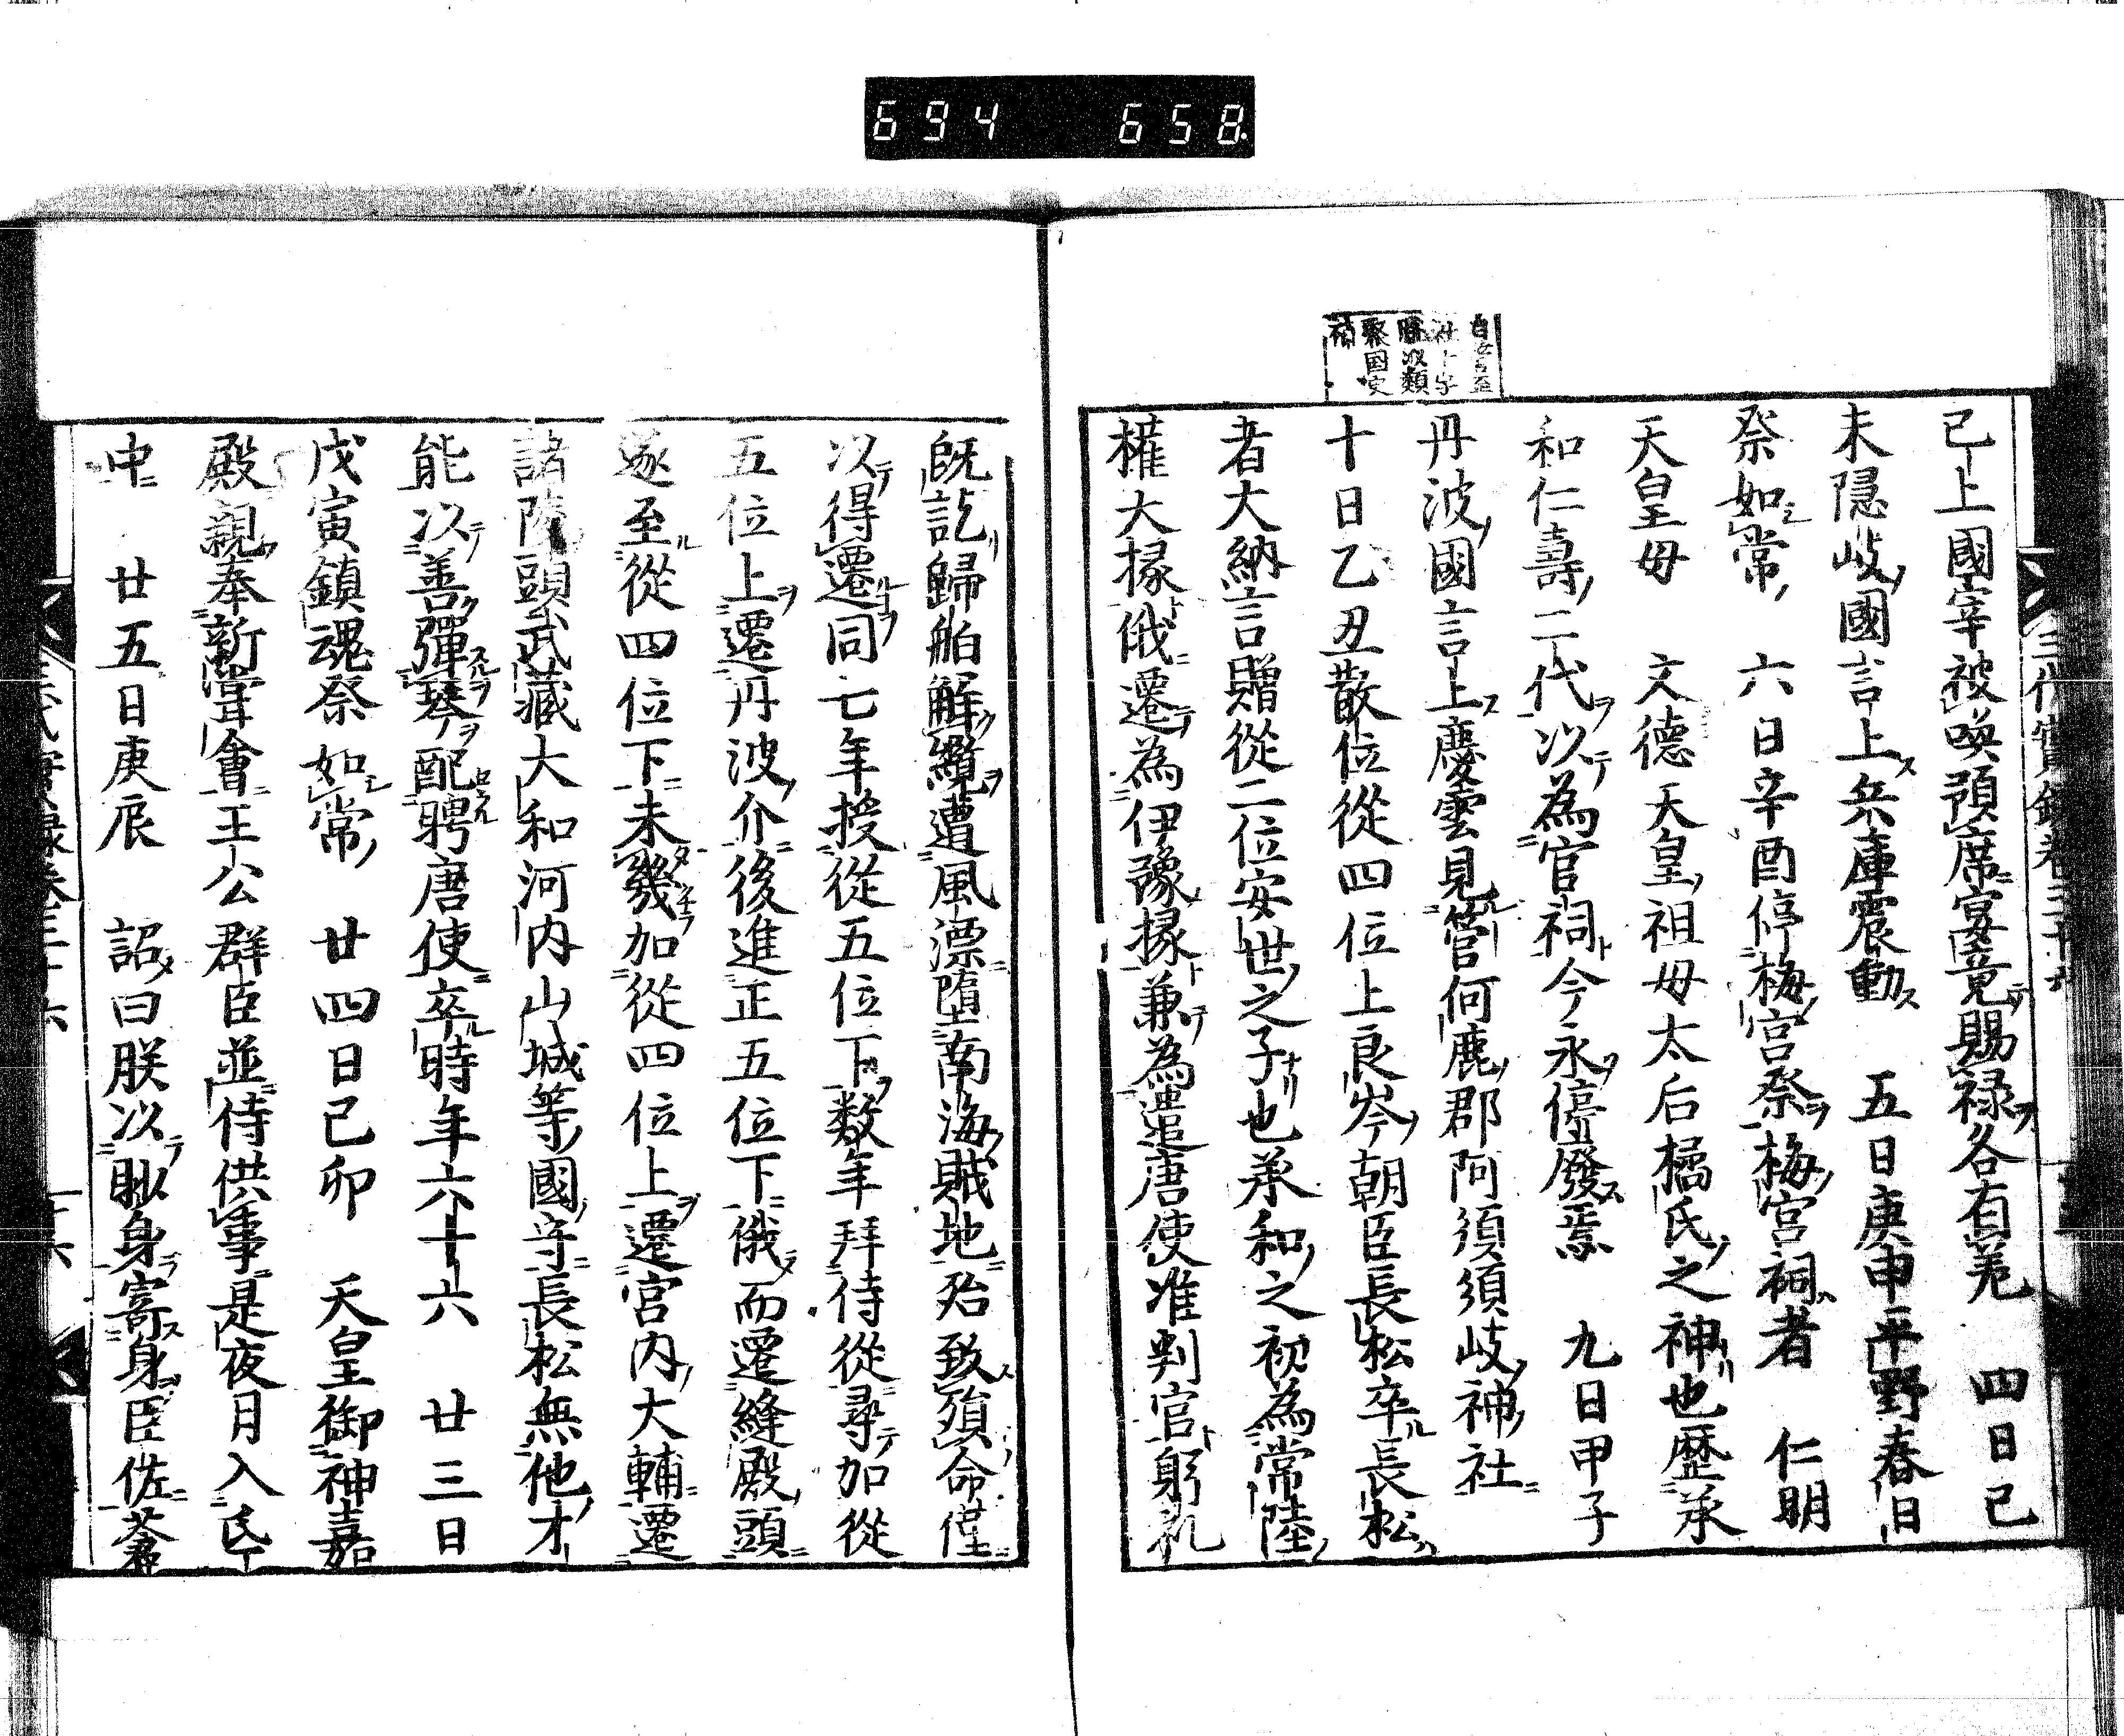 694 658
已上國宰被喚預席宴竟賜禄各有差 四日己
未隠岐國言上兵庫震動 五日庚申平野春日
祭如常 六日辛酉停梅宮祭梅宮祠者 仁明
天皇母 文德天皇祖母太后橘氏之神也歷承
和仁壽二代以為官祠今永停廢焉 九日甲子
丹波國言上慶雲見管何鹿郡阿須須岐神社
十日乙丑散位從四位上良岑朝臣長松卒長松
者大納言贈從二位安世之子也承和之初為常陸
權大掾俄遷為伊豫掾兼為遣唐使准判官躬礼
既訖歸舶解纜遭風漂墮南海賊地殆致殞命僅
以得還同七年授從五位下数年拜侍從尋加從
五位上遷丹波介後進正五位下俄而遷縫殿頭
遂至從四位下未幾加從四位上遷宮内大輔遷
諸陵頭武藏大和河内山城等國守長松無他才
能以善彈琴配聘唐使卒時年六十六 廿三日
戊寅鎮魂祭如常 廿四日己卯 天皇御神嘉
殿親奉新嘗會王公群臣並侍供事是夜月入氐
中 廿五日庚辰 詔曰朕以眇身寄身臣佐
三代實録卷三十六